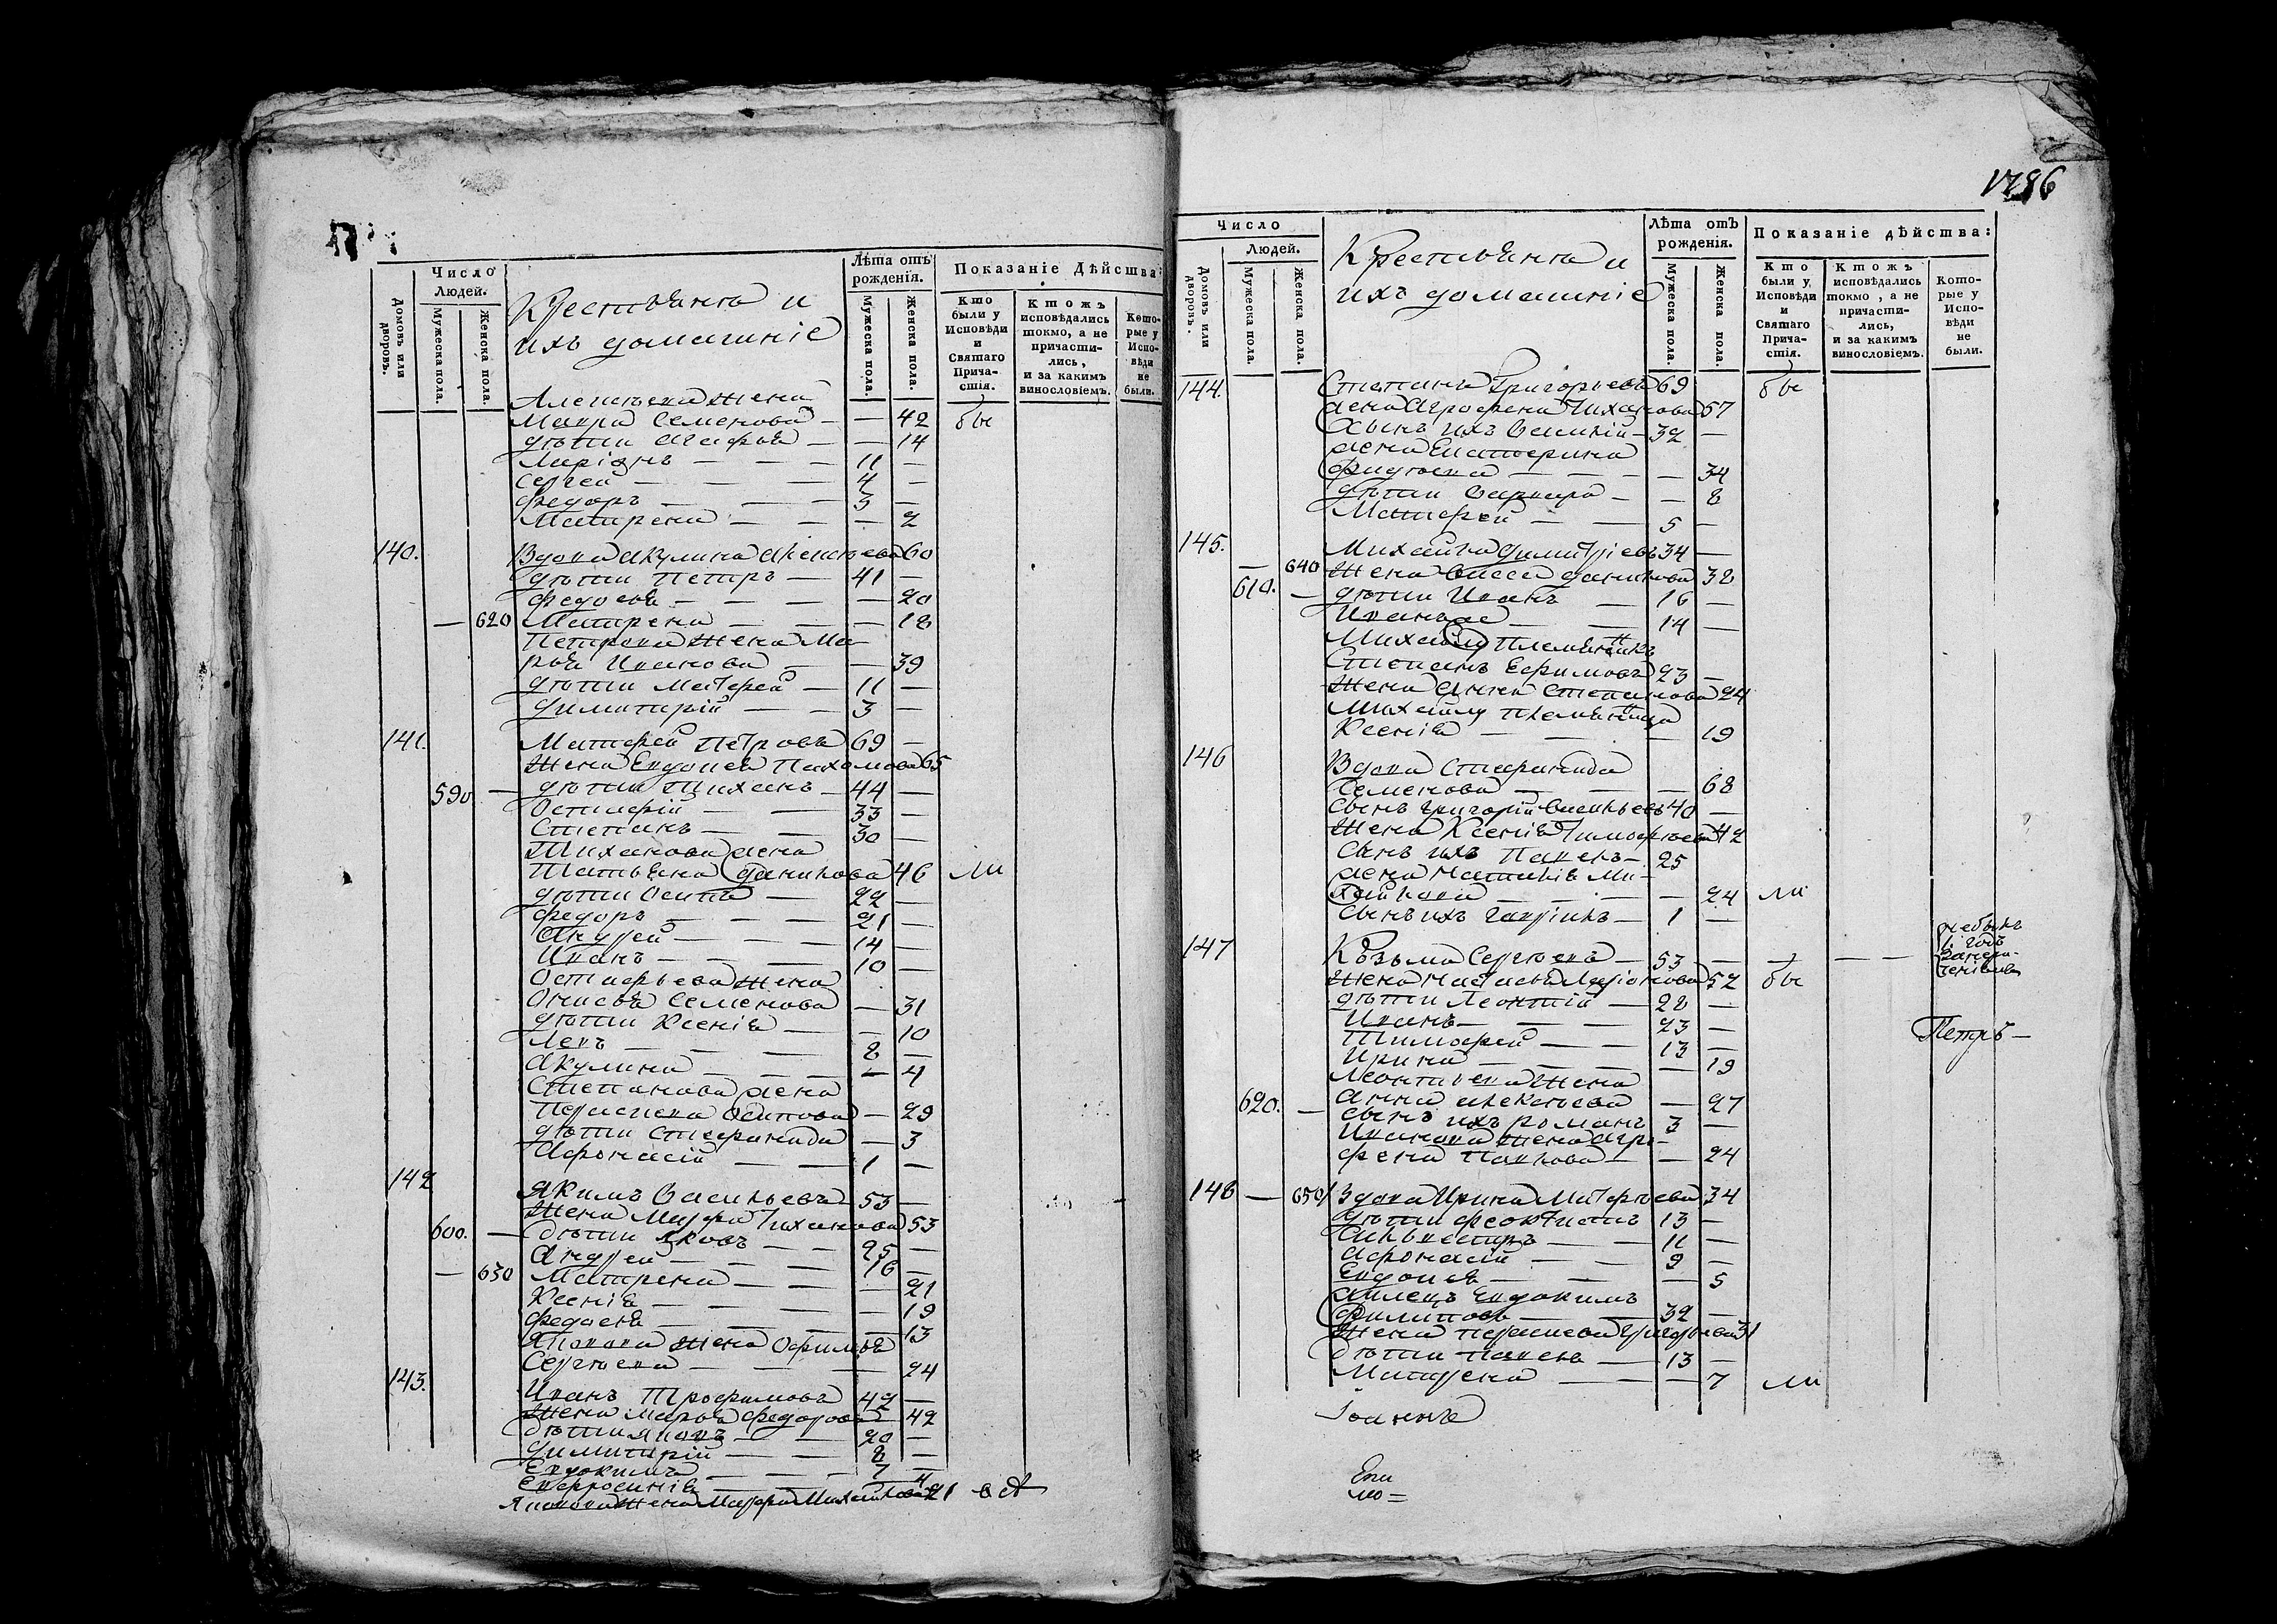 Число
Людей.
Домовъ или дворовъ.
Мужеска пола.
Женска пола.
Крестьяна и
ихъ домашніе
Лѣта отъ рожденія.
Мужеска пола.
Женска пола.
Показаніе Дѣйства:
Кто были у Исповѣди и Святаго Причастія.
Ктожъ исповѣдались токмо, а не причастились, и за какимъ винословіемъ.
Которые у Исповѣди не были.
Алексѣева жена
Мавра Семенова — — 42 бы
дѣти Агафья — — 14
Ларіонъ — — — 11 —
Сергей — — — 4 —
Федоръ — — — 3 —
Матрена — — — 2
140. Вдова Акулина Алексѣева 60
дѣти Петръ — 41 —
Федосья — — — — 20
— 620 Матрена — — — 18
Петрова жена Ма-
рья Иванова — — 39
дѣти Матфей — 11 —
Димитрій — — 3 —
141. Матфей Петровъ 69 —
Жена Евдокея Пахомова 65
590 — дѣти Тиханъ — 44 —
Остафій — — 33 —
Степанъ — — 30 —
Тиханова жена
Татьяна Данилова 46 ли
дѣти Осипъ — 22 —
Федоръ — — — 21 —
Андрей — — — 14 —
Иванъ — — — 10 —
Остафьева жена
Онисья Семенова — 31
дѣти Ксенія — — 10
Левъ — — — 8 —
Акулина — — — 4
Степанова жена
Парасковa Осипова — 29
дѣти Стефанида — 3
Афонасій — — 1 —
142 Якимъ Васильевъ 53 —
Жена Марфа Тиханова 53
600. — дѣти Яковъ — — 25 —
Андрей — — — 16 —
— 630 Матрена — — — 21
Ксенія — — — — 19
Федосья — — — — 13
Яковова жена Офимья
Сергѣева — — — 24
143. Иванъ Трофимовъ 42 —
Жена Марья Федорова 42
дѣти Яковъ — — 20 —
Димитрій — — 8 —
Евдокимъ — — — 7 —
Евфросинія — — — 4
Яковова жена Марфа Михайлова 21
1786
Число
Людей.
Домовъ или дворовъ.
Мужеска пола.
Женска пола.
Крестьяна и
ихъ домашніе
Лѣта отъ рожденія.
Мужеска пола.
Женска пола.
Показаніе дѣйства:
Кто были у Исповѣди и Святаго Причастія.
Ктожъ исповѣдались токмо, а не причастились, и за какимъ винословіемъ.
Которые у Исповѣди не были.
144. Степанъ Григорьевъ 69 бы
жена Агрофена Тиханова 57
Сынъ ихъ Василій — 32 —
жена Екатерина
Фадѣева — — — — 34
дѣти Варвара — — 8
Матфей — — 5 —
145. Михайла Димитріевъ 34 —
— 640 Жена Васса Данилова 38
610. — дѣти Иванъ — 16 —
Иванъ же — — 14 —
Михайлу племянникъ
Степанъ Ефимовъ 23 —
Жена Анна Степанова 24
Михайлу племянница
Ксенія — — — 19
146 Вдова Стефанида
Семенова — — — 68
Сынъ Григорій Васильевъ 40 —
Жена Ксенія Тимофѣева 42
Сынъ ихъ Павелъ — 25
жена Наталія Ми-
хайлова — — — 24 ли
Сынъ ихъ Гаврилъ — 1 —
147 Козьма Сергѣевъ — 53 — небылъ
1 годъ
Жена Настасья Ларіонова 52 бы
дѣти Леонтій — 28 —
Иванъ — — — 23 —
Тимофей — — 13 —
Ирина — — — — 19
Петръ —
Леонтьева жена
620. — Анна Алексѣева — 27
Сынъ ихъ Романъ 3 —
Иванова жена Агро-
фена Павлова — — 24
148 — 650 Вдова Ирина Матфѣева 34
дѣти Феоктистъ 13 —
Сильвестръ — — 11 —
Афонасій — — 9 —
Евдокея — — — 5
жилецъ Евдокимъ
Филиповъ — — 32 —
Жена Парасковa Григорьева 31
дѣти Павелъ — 13 —
Матрена — — — 7 ли
Іоаннъ